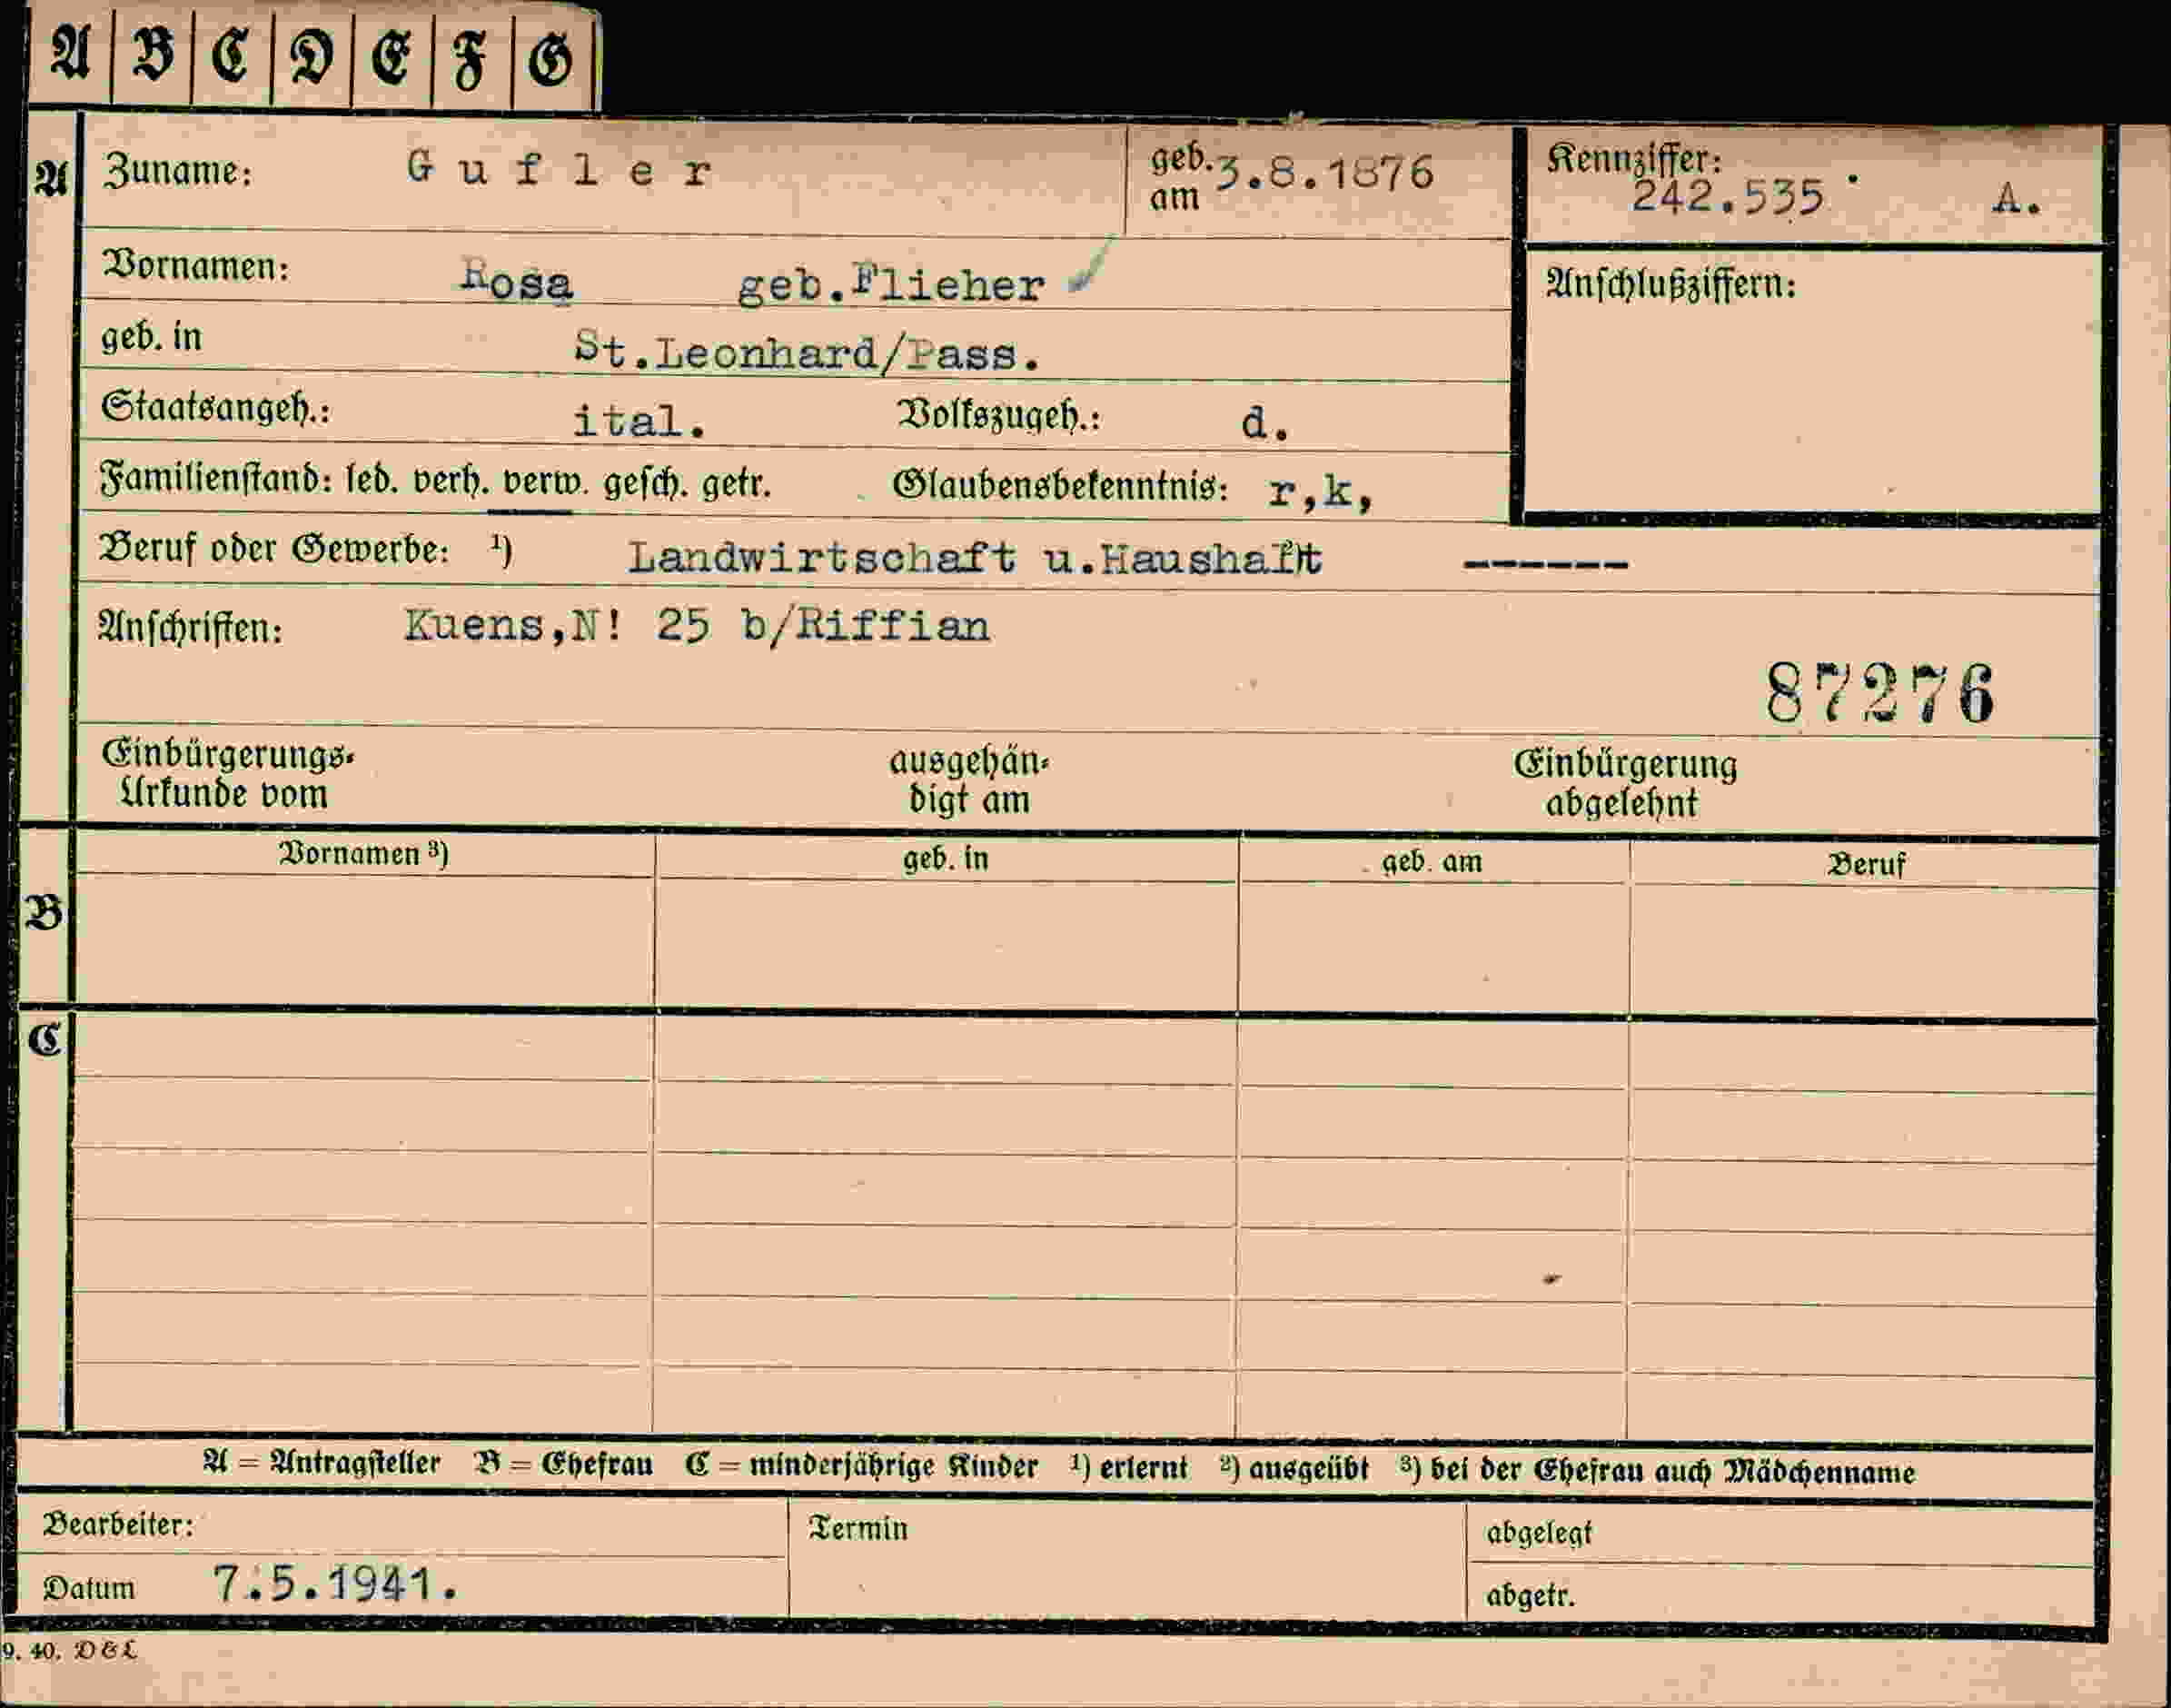 A B C D E F G
A Zuname: Gufler geb. am 3.8.1876 Kennziffer: 242.535 A.
Vornamen: Rosa geb.Flieher Anschlußziffern:
geb. in St.Leonhard/Pass.
Staatsangeh.: ital. Volkszugeh.: d.
Familienstand: led. verh. verw. gesch. getr. Glaubensbekenntnis: r,k,
Beruf oder Gewerbe: ¹) Landwirtschaft u.Haushalt ------
Anschriften: Kuens,N! 25 b/Riffian
87276
Einbürgerungs- Urkunde vom ausgehän- digt am Einbürgerung abgelehnt
Vornamen ³) geb. in geb. am Beruf
B
C
A = Antragsteller B = Ehefrau C = minderjährige Kinder ¹) erlernt ²) ausgeübt ³) bei der Ehefrau auch Mädchenname
Bearbeiter: Termin abgelegt
Datum 7.5.1941. abgetr.
9. 40. D&L